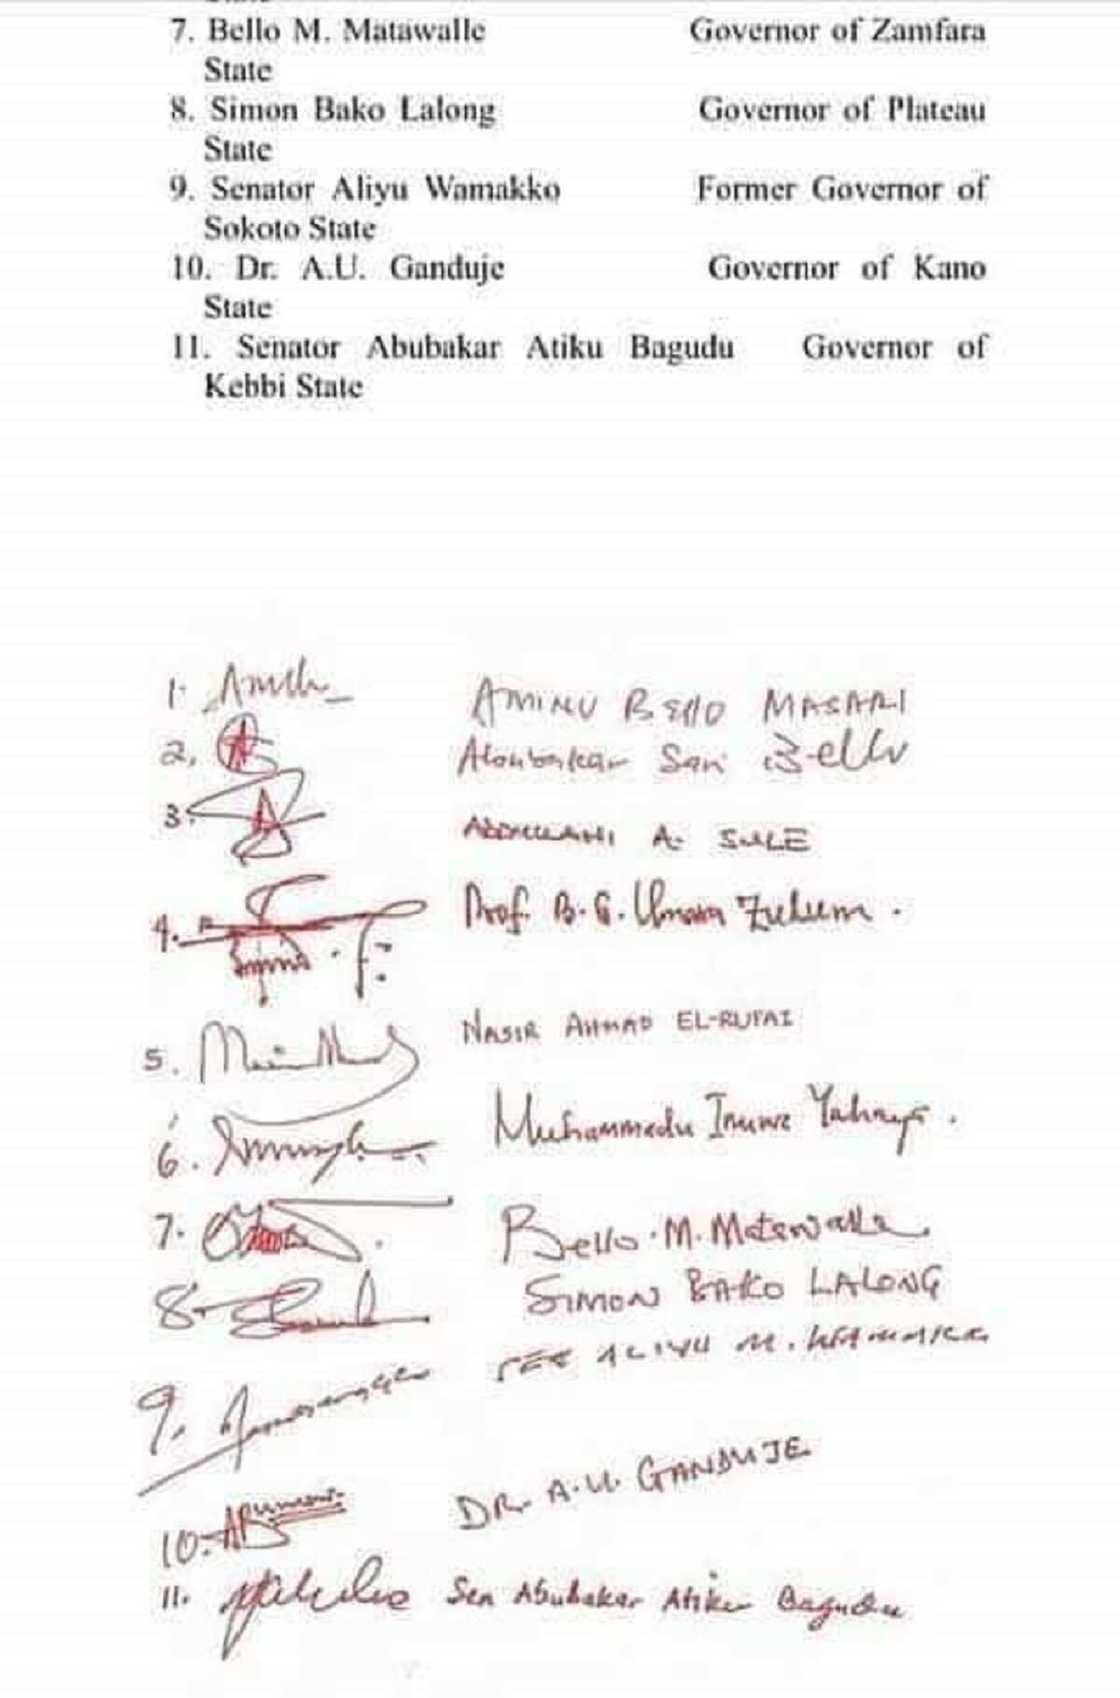 7. Bello M. Matawalle Governor of Zamfara
State
8. Simon Bako Lalong Governor of Plateau
State
9. Senator Aliyu Wamakko Former Governor of
Sokoto State
10. Dr. A.U. Ganduje Governor of Kano
State
11. Senator Abubakar Atiku Bagudu Governor of
Kebbi State
1. AMINU BELLO MASARI
2. Abubakar Sani Bello
3. ABDULLAHI A. SULE
4. Prof. B. G. Umara Zulum.
5. NASIR AHMAD EL-RUFAI
6. Muhammadu Inuwa Yahaya.
7. Bello. M. Matawalle.
8. SIMON BAKO LALONG
9. ALIYU M.
10. DR. A.U. GANDUJE
11. Sen Abubakar Atiku Bagudu